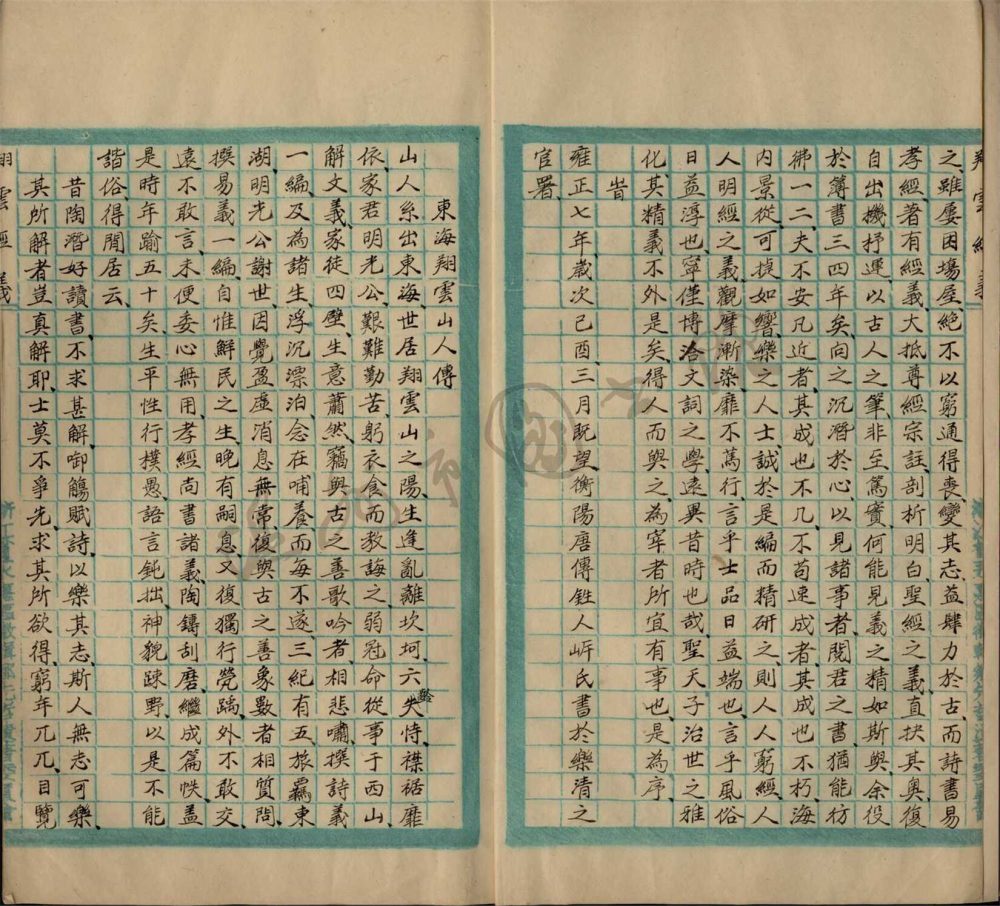 翔雲經義
之雖屢困場屋絕不以窮通得喪變其志益肆力於古而詩書易
孝經著有經義大抵尊經宗註剖析明白聖經之義直抉其奧復
自出機抒運以古人之筆非至篤實何能見義之精如斯與余役
於簿書三四年矣向之沉潛於心以見諸事者閱君之書猶能彷
彿一二夫不安凡近者其成也不凡不苟速成者其成也不朽海
內景從可捷如響樂之人士誠於是編而精研之則人人窮經人
人明經之義觀摩漸染靡不篤行言乎士品日益端也言乎風俗
日益淳也寧僅博洽文詞之學遠異昔時也哉聖天子治世之雅
化其精義不外是矣得人而與之為宰者所宜有事也是為序
旹
雍正七年歲次己酉三月既望衡陽唐傳鉎人岸氏書於樂清之
官署
東海翔雲山人傳
山人系出東海世居翔雲山之陽生逢亂離坎坷六齡失恃襟裾靡
依家君明光公艱難勤苦躬衣食而教誨之弱冠命從事于西山
解文義家徒四壁生意蕭然竊與古之善歌吟者相悲嘯撰詩義
一編及為諸生浮沉漂泊念在哺養而每不遂三紀有五旅覊東
湖明光公謝世因覺盈虛消息無常復與古之善象數者相質問
撰易義一編自惟鮮民之生晚有嗣息又復獨行煢踽外不敢交
遠不敢言未便委心無用孝經尚書諸義陶鑄刮磨繼成篇帙蓋
是時年踰五十矣生平性行樸愚語言鈍拙神貌踈野以是不能
諧俗得閒居云
昔陶潛好讀書不求甚解啣觴賦詩以樂其志斯人無志可樂
其所解者豈真解耶士莫不爭先求其所欲得窮年兀兀目覽
翔雲經義